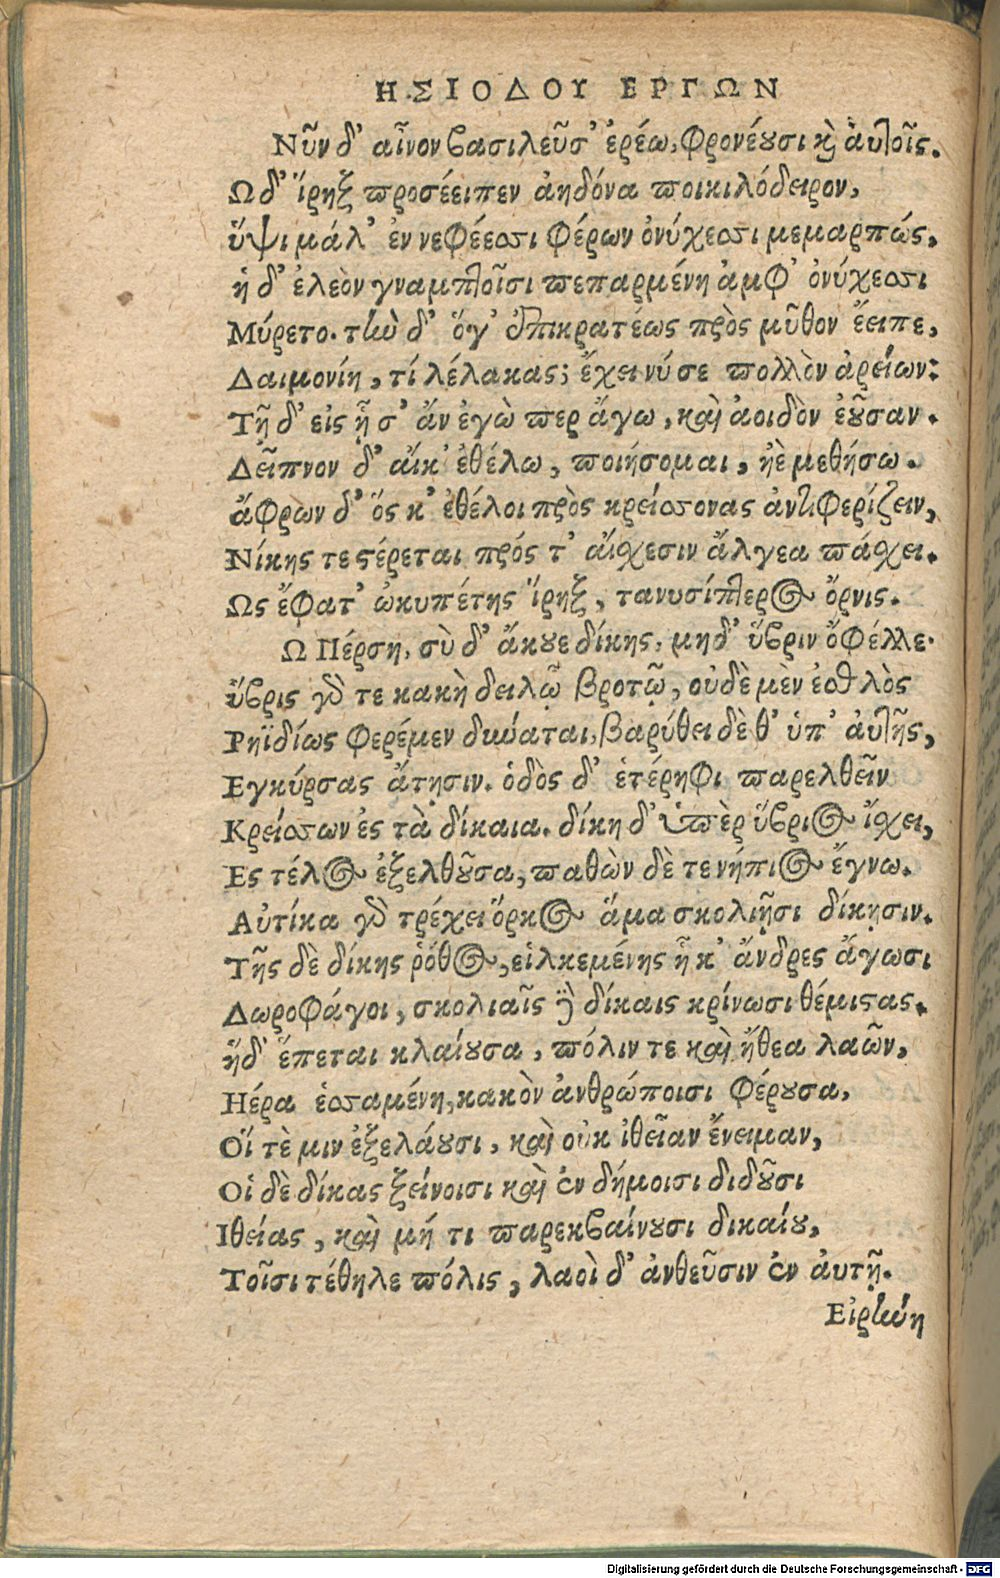 ΗΣΙΟΔΟΥ ΕΡΓΩΝ
Νῦν δ' αἶνον βασιλεῦσ' ἐρέω, φρονέουσι καὶ αὐτοῖς.
Ωδ' ἵρηξ προσέειπεν ἀηδόνα ποικιλόδειρον,
ὕψι μάλ' ἐν νεφέεσσι φέρων ὀνύχεσσι μεμαρπώς.
ἡ δ' ἐλεὸν γναμπτοῖσι πεπαρμένη ἀμφ' ὀνύχεσσι
Μύρετο. τὴν δ' ὅγ' ἐπικρατέως πρὸς μῦθον ἔειπε,
Δαιμονίη, τί λέλακας; ἔχει νύ σε πολλὸν ἀρείων:
Τῇ δ' εἰς ᾗ σ' ἂν ἐγὼ περ ἄγω, καὶ ἀοιδὸν ἐοῦσαν.
Δεῖπνον δ' αἴκ' ἐθέλω, ποιήσομαι, ἠὲ μεθήσω.
ἄφρων δ' ὅς κ' ἐθέλοι πρὸς κρείσσονας ἀντιφερίζειν,
Νίκης τε στέρεται πρός τ' αἴσχεσιν ἄλγεα πάσχει.
Ως ἔφατ' ὠκυπέτης ἵρηξ, τανυσίπτερος ὄρνις.
Ω Πέρση, σὺ δ' ἄκουε δίκης, μηδ' ὕβριν ὄφέλλε.
ὕβρις γάρ τε κακὴ δειλῷ βροτῷ, οὐδὲ μὲν ἐσθλὸς
Ρηϊδίως φερέμεν δύναται, βαρύθει δὲ θ' ὑπ' αὐτῆς,
Εγκύρσας ἄτῃσιν. ὁδὸς δ' ἑτέρηφι παρελθεῖν
Κρείσσων ἐς τὰ δίκαια. δίκη δ' ὑπὲρ ὕβριος ἴσχει,
Ες τέλος ἐξελθοῦσα, παθὼν δὲ τε νήπιος ἔγνω.
Αὐτίκα γὰρ τρέχει ὅρκος ἅμα σκολιῇσι δίκῃσιν.
Τῆς δὲ δίκης ῥόθος, εἱλκεμένης ᾗ κ' ἄνδρες ἄγωσι
Δωροφάγοι, σκολιαῖς δὲ δίκαις κρίνωσι θέμιστας.
ἡδ' ἕπεται κλαίουσα, πόλιν τε καὶ ἤθεα λαῶν,
Ηέρα ἑσσαμένη, κακὸν ἀνθρώποισι φέρουσα,
Οἵ τὲ μιν ἐξελάουσι, καὶ οὐκ ἰθεῖαν ἔνειμαν,
Οἱ δὲ δίκας ξείνοισι καὶ ἐν δήμοισι διδοῦσι
Ιθείας, καὶ μή τι παρεκβαίνουσι δικαίου,
Τοῖσι τέθηλε πόλις, λαοὶ δ' ἀνθεῦσιν ἐν αὐτῇ.
Εἰρήνη
Digitalisierung gefördert durch die Deutsche Forschungsgemeinschaft - DFG